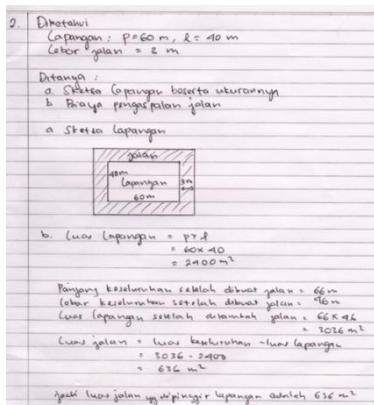 2. Diketahui
Lapangan : P = 60 m, l = 40 m
Lebar jalan = 3 m
Ditanya :
a. Sketsa Lapangan beserta ukurannya
b. Biaya pengaspalan jalan
a. Sketsa Lapangan
jalan
40m
Lapangan
3m
60m
b. Luas Lapangan = p x l
= 60 x 40
= 2400 m²
Panjang keseluruhan setelah dibuat jalan = 66 m
Lebar keseluruhan setelah dibuat jalan = 46 m
Luas Lapangan setelah ditambah jalan = 66 x 46
= 3036 m²
Luas jalan = luas keseluruhan - luas Lapangan
= 3036 - 2400
= 636 m²
Jadi luas jalan yg dipinggir lapangan adalah 636 m²